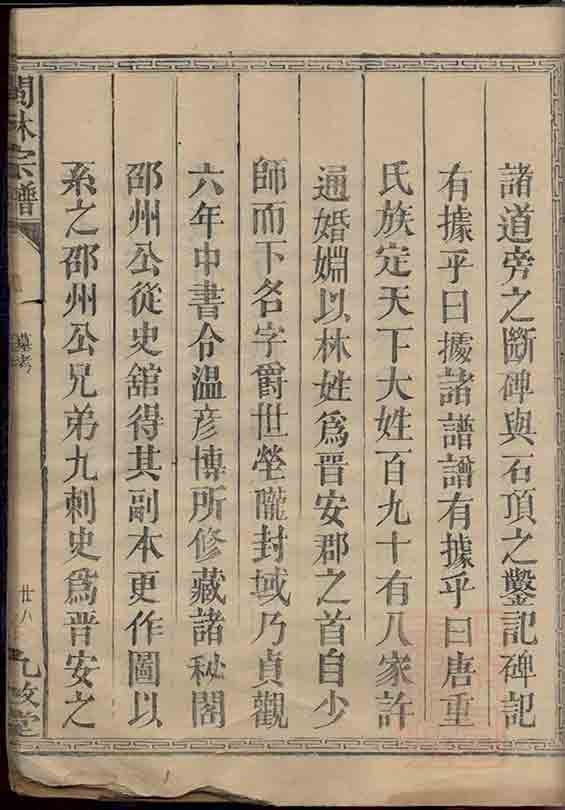 諸道旁之斷碑與石頂之鑿記碑記
有據乎曰據諸譜譜有據乎曰唐重
氏族定天下大姓百九十有八家許
通婚婣以林姓爲晋安郡之首自少
師而下名字爵世塋隴封域乃貞觀
六年中書令温彦博所修藏諸秘閣
邵州公從史舘得其副本更作圖以
系之邵州公兄弟九刺史爲晋安之
林宗譜
墓考
廿八
九牧堂